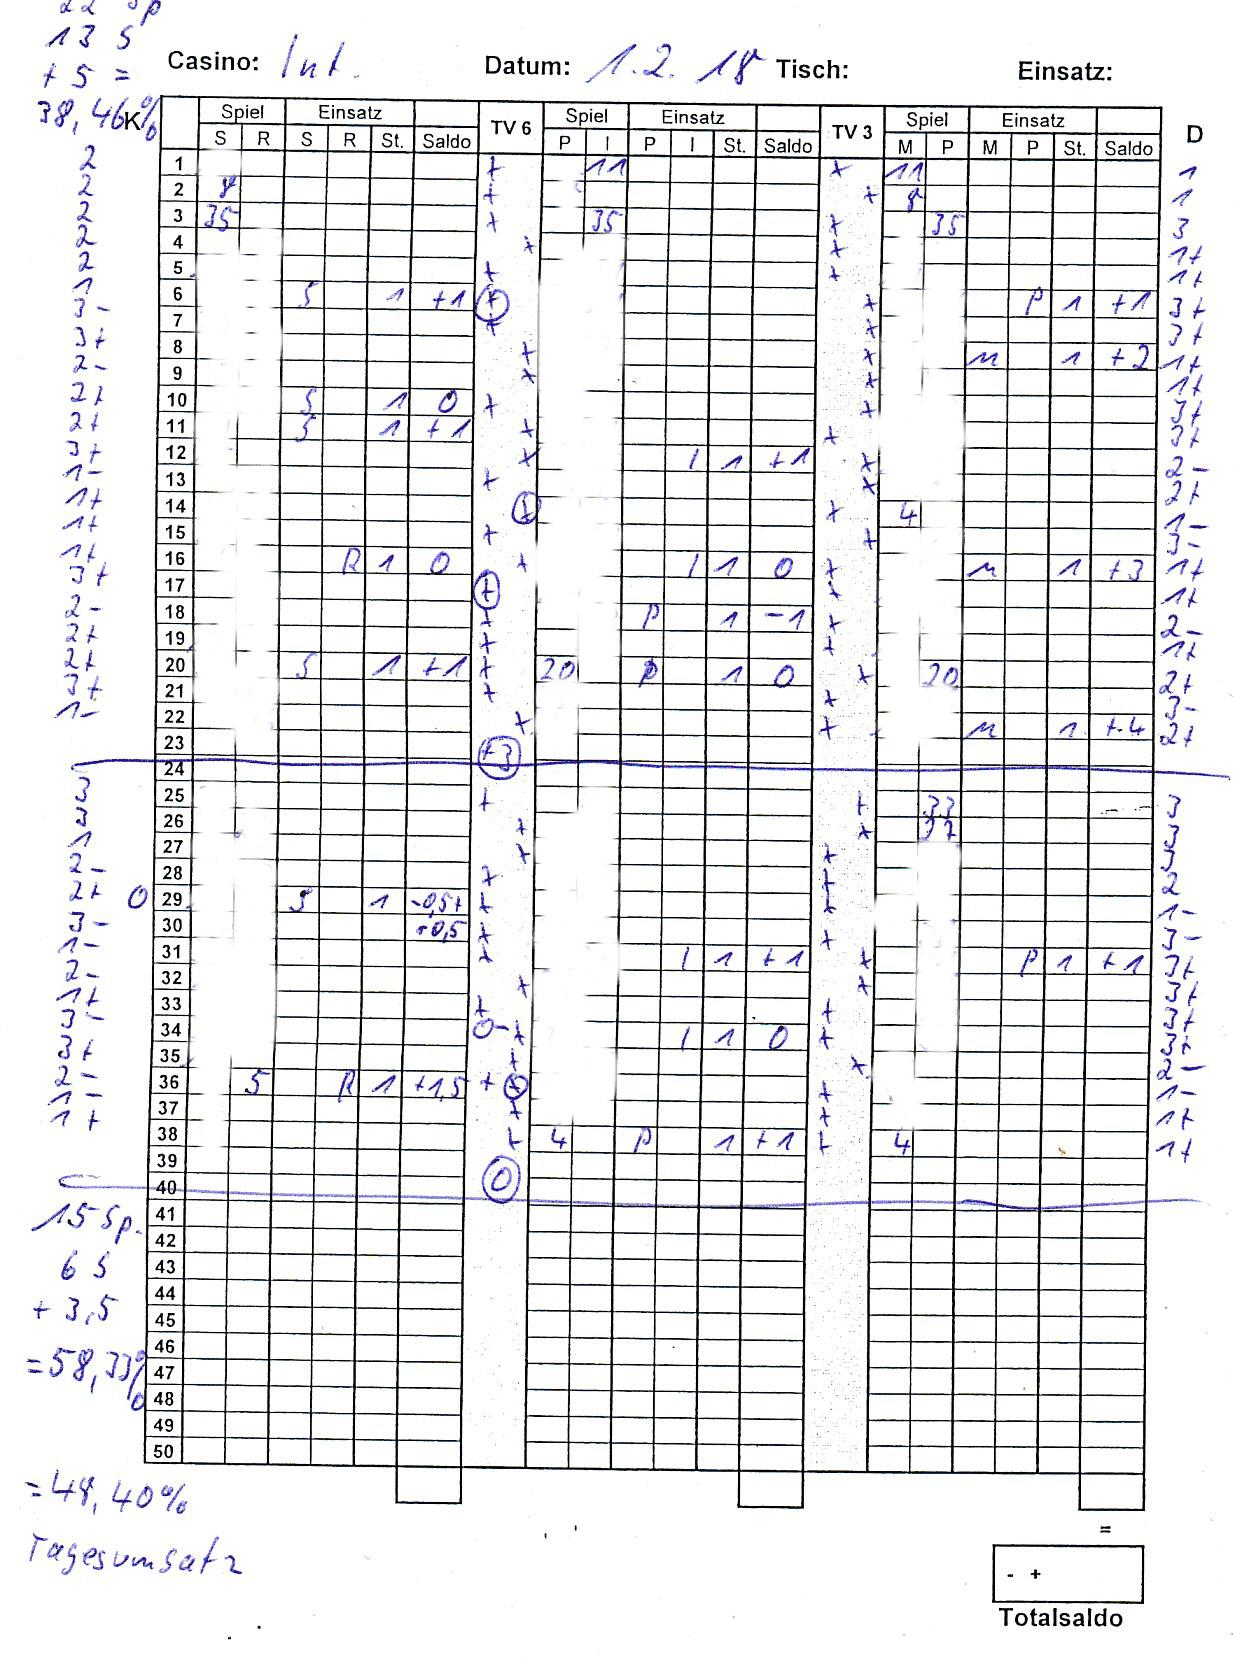 22 Sp
13 S
+ 5 =
38,46 %
Casino: Int. Datum: 1.2.18 Tisch: Einsatz:
K Spiel Einsatz TV 6 Spiel Einsatz TV 3 Spiel Einsatz D
S R S R St. Saldo P I P I St. Saldo M P M P St. Saldo
2 1 + 11 + 11 1
2 2 8 + + 8 1
2 3 35 + 35 + 35 3
2 4 + + 1+
2 5 + + 1+
1 6 S 1 +1 + + P 1 +1 3+
3- 7 + + 3+
3+ 8 + + M 1 +2 1+
2- 9 + + 1+
2+ 10 S 1 0 + + 3+
2+ 11 S 1 +1 + + 3+
3+ 12 + I 1 +1 + 2-
1- 13 + + 2+
1+ 14 + + 4 1-
1+ 15 + + 3-
1+ 16 R 1 0 + I 1 0 + M 1 +3 1+
3+ 17 + + 1+
2- 18 + P 1 -1 + 2-
2+ 19 + + 1+
2+ 20 S 1 +1 + 20 P 1 0 + 20 2+
3+ 21 + + 3-
1- 22 + + M 1 +4 2+
23 +3
24
3 25 + + 33 3
3 26 + + 37 3
1 27 + + 3
2- 28 + + 2
2+ 0 29 S 1 -0,5+ + + 1-
3- 30 +0,5 + + 3-
1- 31 + I 1 +1 + P 1 +1 3+
2- 32 + + 3+
1+ 33 + + 3+
3- 34 0- + I 1 0 + 3+
3+ 35 + + 2-
2- 36 5 R 1 +1,5 + + + 1-
1+ 37 + + 1+
38 + 4 P 1 +1 + 4 1+
39 0
40
41
15 Sp.
42
6 S 43
44
+ 3,5 45
46
= 58,33% 47
48
49
50
= 48,40%
=
Tagesumsatz
- +
Totalsaldo